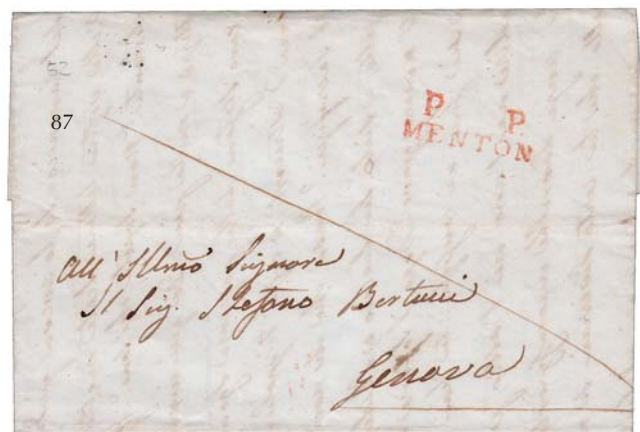 52
P. P.
MENTON
87
All' Illmo Signore
Il Sig. Stefano Bertucci
Genova